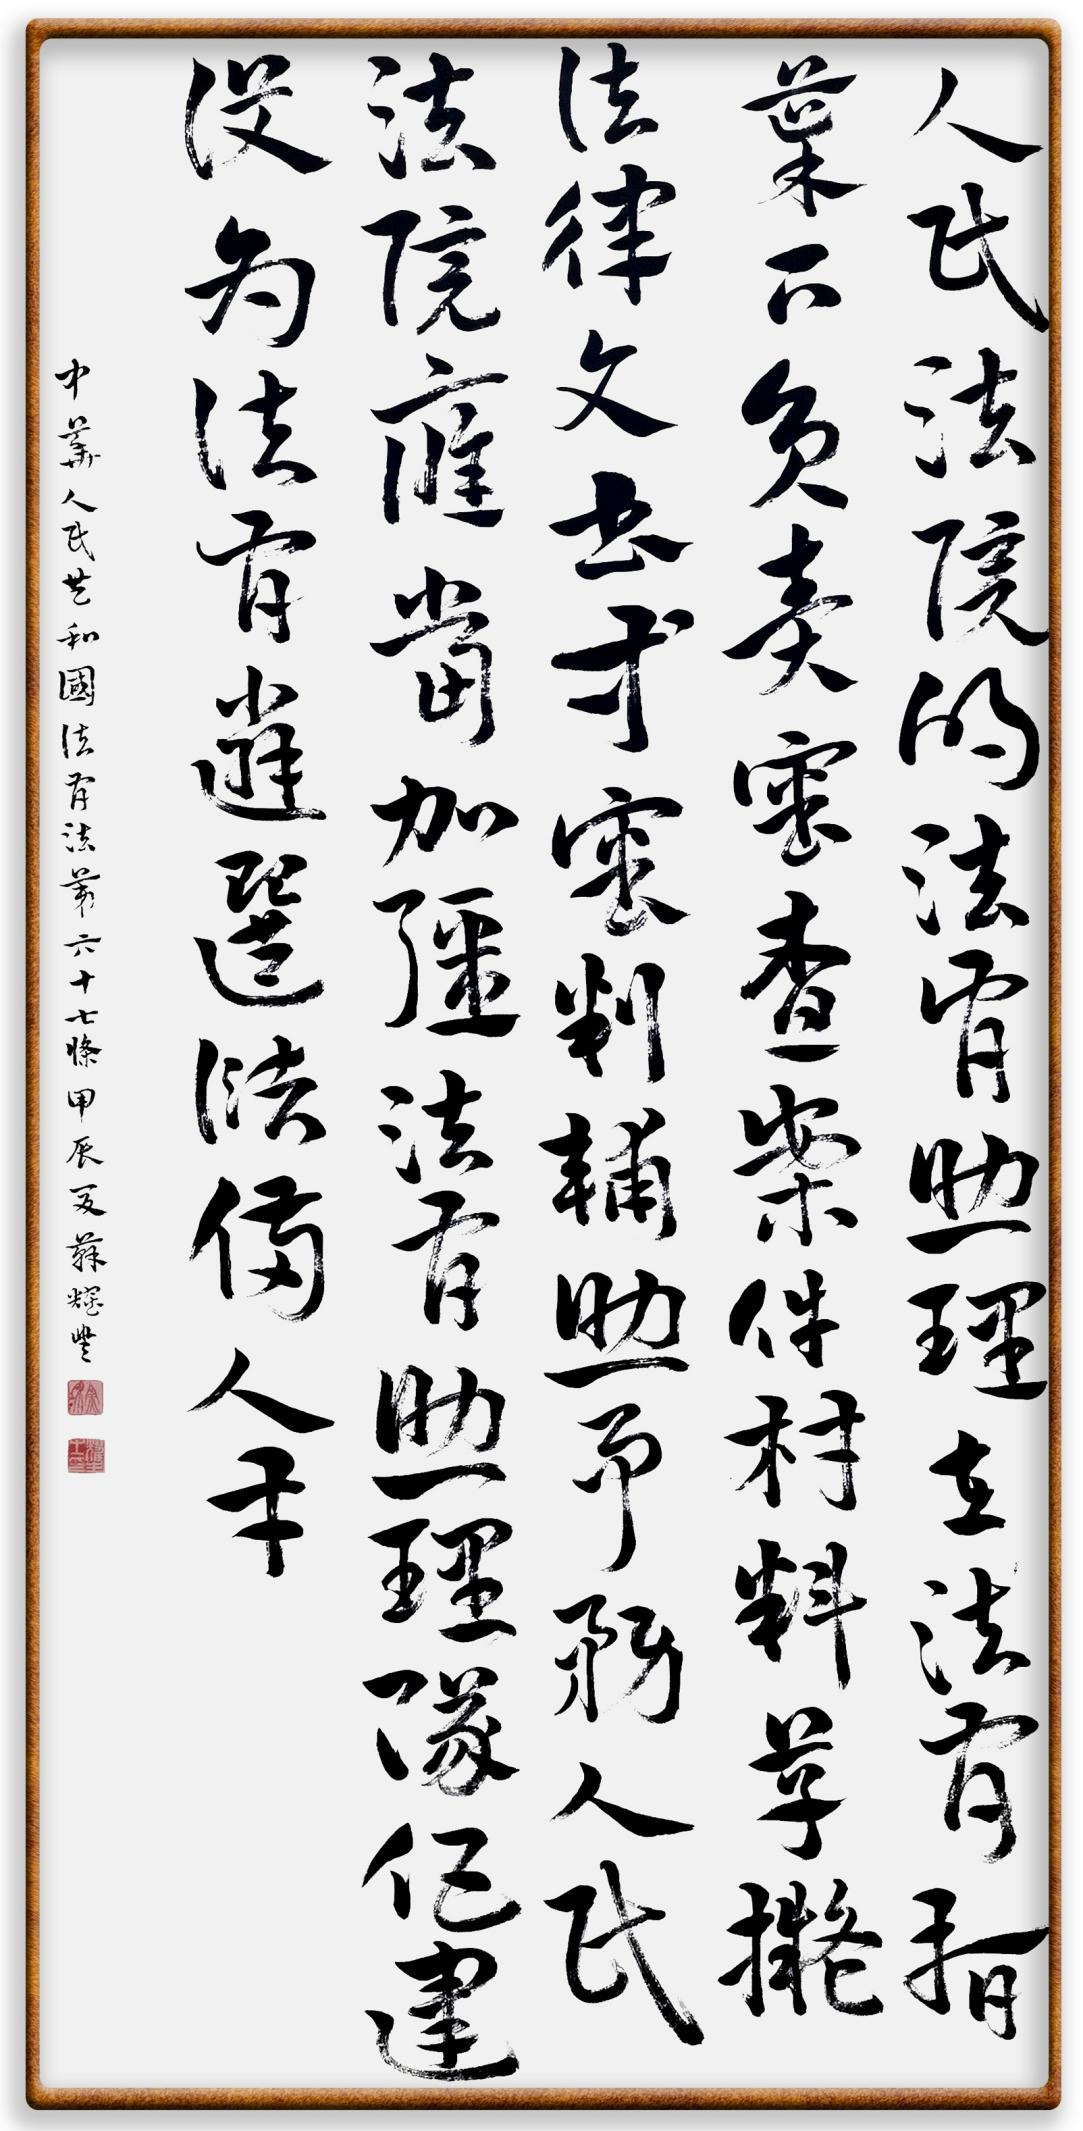 人民法院的法官助理在法官指
導下負責審查案件材料草擬
法律文書等審判輔助事務人民
法院應當加彊法官助理隊伍建
設為法官遴選儲備人才
中華人民共和國法官法第六十七條甲辰夏蘇耀豐